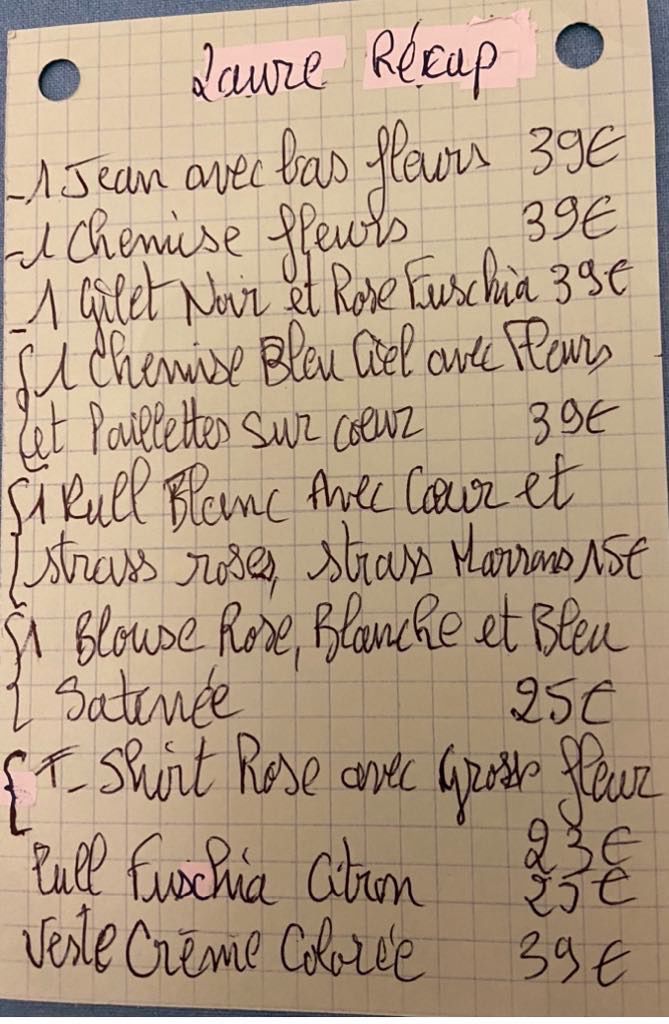 Laure Récap
-1 Jean avec bas fleurs 39€
-1 Chemise fleurs 39€
-1 Gilet Noir et Rose Fuschia 39€
1 Chemise Bleu Ciel avec Fleurs
et Paillettes sur coeur 39€
1 Pull Blanc Avec Cœur et
strass roses, strass Marrons 15€
1 Blouse Rose, Blanche et Bleu
Satinée 25€
T-Shirt Rose avec Grosse fleur
23€
Pull Fuschia Citron 25€
Veste Crème Colorée 39€